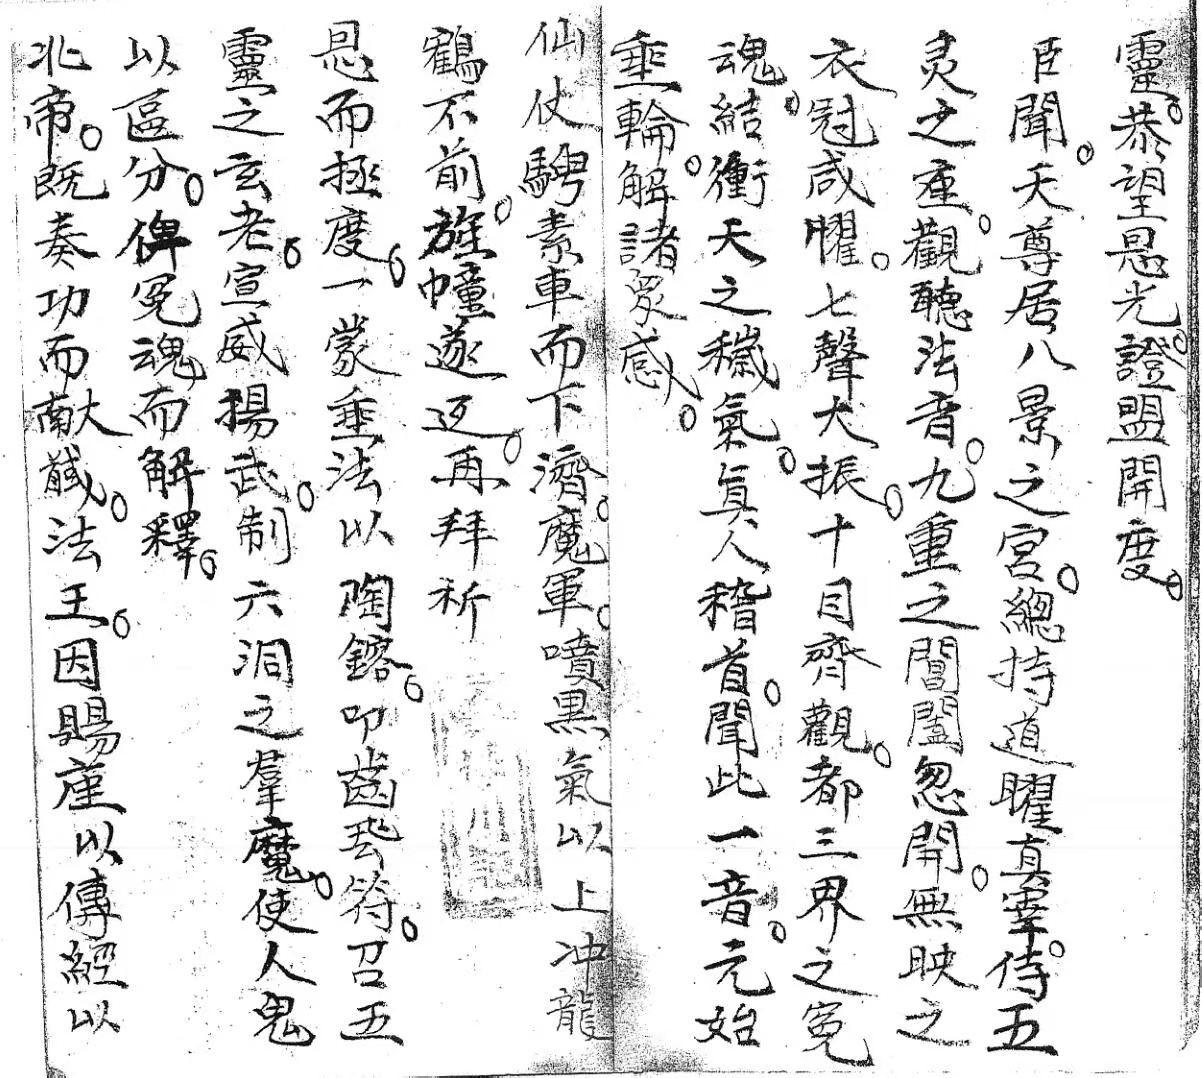 靈。恭望恩光。證盟開度。
臣聞。天尊居八景之宮。總持道曜真宰。侍五
灵之座。觀聽法音。九重之閶闔忽開。無映之
衣冠咸耀。七聲大振。十目齊觀。都三界之冤
魂。結衝天之穢氣。真人稽首。聞此一音。元始
垂輪。解諸衆惑。
仙仗騁素車而下濟。魔軍。噴黑氣以上冲龍
鶴不前。旌幢遂返。再拜祈
恩而拯度。一蒙垂法以陶鎔。叩齒飛符。召五
靈之玄老。宣威揚武。制六洞之羣魔。使人鬼
以區分。俾冤魂而解釋。
北帝。既奏功而献馘。法王。因賜座以傳經以